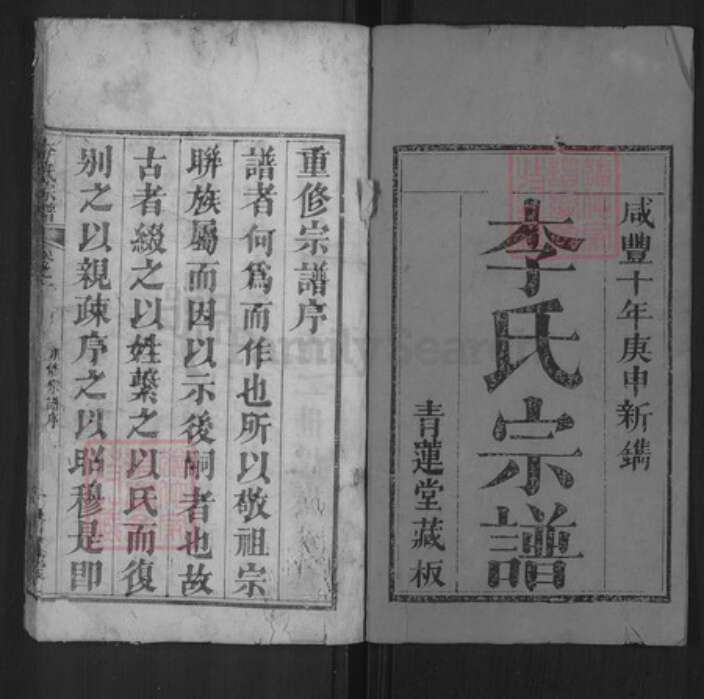 咸豐十年庚申新鐫
李氏宗譜
青蓮堂藏板
重修宗譜序
譜者何爲而作也所以敬祖宗
聯族屬而因以示後嗣者也故
古者綴之以姓繫之以氏而復
別之以親疎序之以昭穆是卽
李氏宗譜
重修宗譜序
FamilySearch